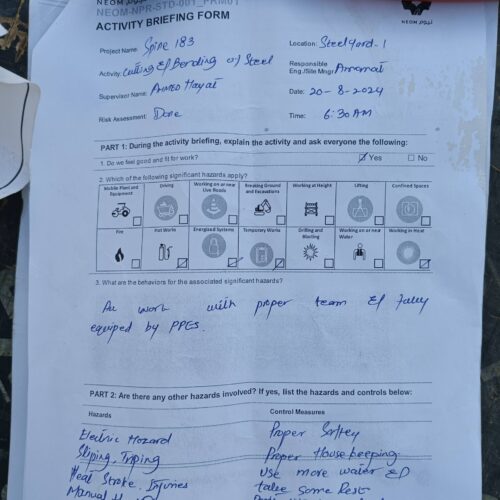 NEOM
NEOM-NPR-STD-001_PRM01
ACTIVITY BRIEFING FORM
نيوم NEOM
Project Name: Spine 183
Location: Steelyard-1
Activity: Cutting & Bending of Steel
Responsible Eng./Site Mngr:
Supervisor Name: AHMED Hayat
Date: 20-8-2024
Risk Assessment: Done
Time: 6:30 AM
PART 1: During the activity briefing, explain the activity and ask everyone the following:
1. Do we feel good and fit for work? Yes No
2. Which of the following significant hazards apply?
Mobile Plant and Equipment
Driving
Working on or near Live Roads
Breaking Ground and Excavations
Working at Height
Lifting
Confined Spaces
Fire
Hot Works
Energized Systems
Temporary Works
Drilling and Blasting
Working on or near Water
Working in Heat
3. What are the behaviors for the associated significant hazards?
work with proper team & fuley
equiped by PPES.
PART 2: Are there any other hazards involved? If yes, list the hazards and controls below:
Hazards
Control Measures
Electric Hazard
Proper
Sliping, Triping
Proper House keeping
Heat Stroke, Injuries
Use more water &
Manual
take some Rest